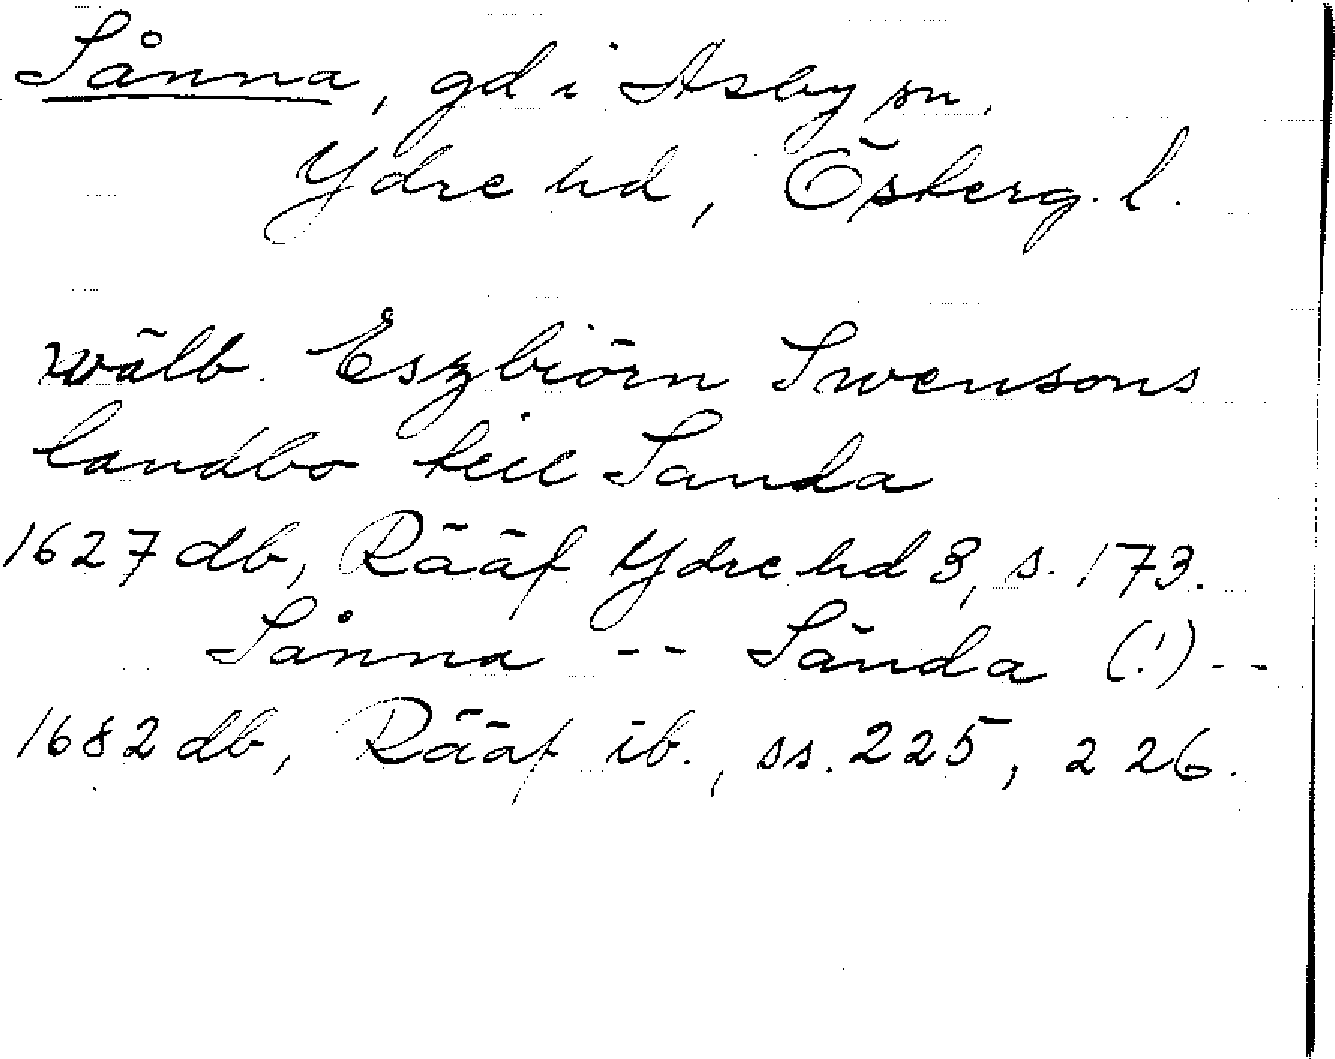 Sånna, gd i Asby sn,
Ydre hd, Österg. l.
wälb. Eszbiörn Swensons
landbo till Sanda
1627 db, Rääf Ydre hd 3, s. 173.
Sånna -- Sända (!) --
1682 db, Rääf ib., ss. 225, 226.